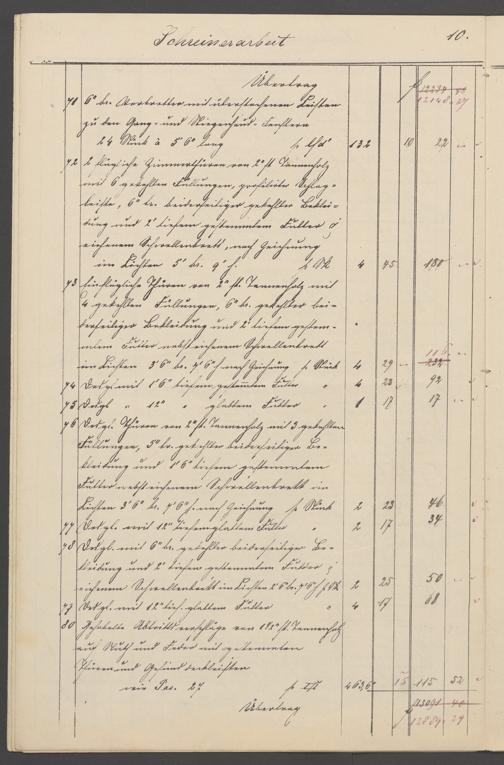 Schreinerarbeit 10.
Übertrag f 12234
12148. 27
71 6" br. Vorbretter mit überstehenden Leisten
zu den Gang- und Stiegenhaus-Fenstern
24 Stück à 5' 6" lang p. lfd' 132 10 22 — —
72 2 flügliche Zimmerthüren von 2" st. Tannenholz
mit 6 gekehlten Füllungen, profilirter Schlag-
leiste, 6" br. beiderseitiger gekehlter Beklei-
dung und 2' tiefem gestemmtem Futter
eichenem Schwellenbrett, nach Zeichnung
im Lichten 5' br. 9' h. p. Stk 4 45 180 — —
73 Einflügliche Thüren von 2" st. Tannenholz mit
4 gekehlten Füllungen, 6" br. gekehlter bei-
derseitiger Bekleidung und 2' tiefem gestem-
mtem Futter nebst eichenem Schwellenbrett 116
im Lichten 3' 6" br. 7' 6" h nach Zeichnung p. Stück 4 29 — 232
74 Desgl. mit 1' 6" tiefem gestemmtem Futter " 4 23 92
75 Desgl. " 12" " glattem Futter 1 17 17 — —
76 Desgl. Thüren von 2" st. Tannenholz mit 3 gekehlten
Füllungen, 5" br. gekehlter beiderseitiger Be-
kleidung und 1' 6" tiefem gestemmtem
Futter nebst eichenem Schwellenbrett im
Lichten 3' 6" br. 7' 6" h. nach Zeichnung p. Stück 2 23 46
77 Desgl. mit 12" tiefem glattem Futter " 2 17 34
78 Desgl. mit 6" br. gekehlter beiderseitiger Be-
kleidung und 2' tiefem gestemmtem Futter
eichenem Schwellenbrett im Lichten 2' 6" br. 7' 6" h p. Stk 2 25 50 — —
79 Desgl. mit 12" tief. glattem Futter " 4 17 68
80 Gehobelte Abtrittverschläge von 1½" st. Tannenholz
auf Nuth und Feder mit gestemmten
Thüren und Gesimsdeckleisten
wie Pos. 27 p. □' 463,6 15 115 52
Übertrag 13091 40
f 12884. 29